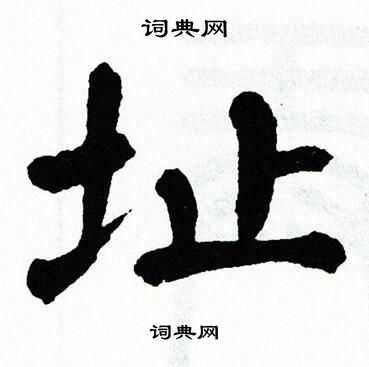 词典网
址
词典网